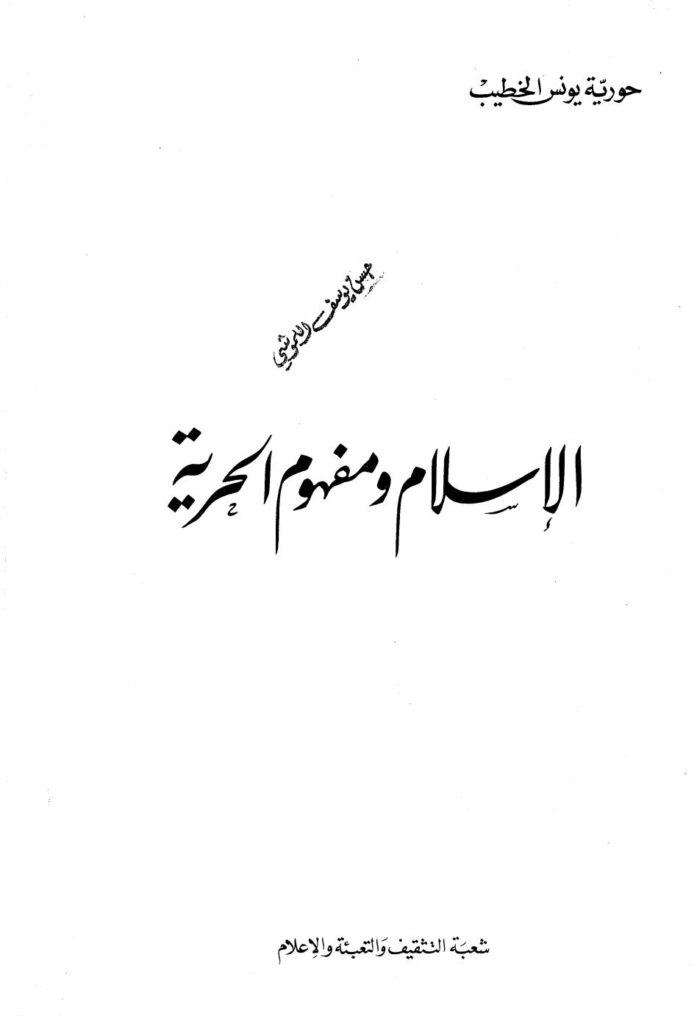 حوريّة يونس الخطيب
حسن يوسف
الإسلام ومفهوم الحرية
شعبَة التثقيف وَالتعبئة والإعلام